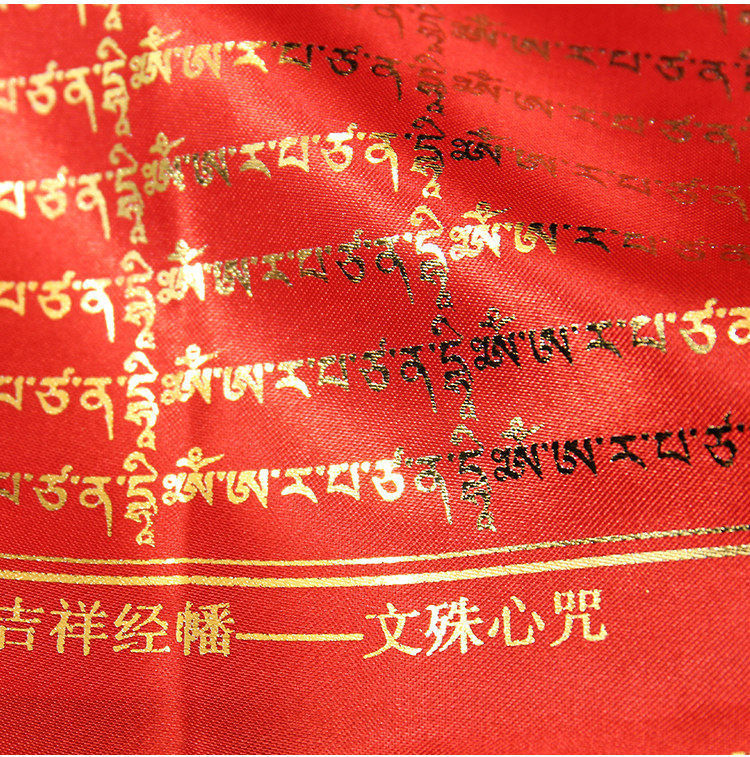 པ་ཙ་ན་དྷཱི༔ ༀ་ཨ་ར་པ་ཙ་ན་དྷཱི༔ ༀ་ཨ་ར་པ་ཙ་
པ་ཙ་ན་དྷཱི༔ ༀ་ཨ་ར་པ་ཙ་ན་དྷཱི༔ ༀ་ཨ་ར་པ་ཙ་
པ་ཙ་ན་དྷཱི༔ ༀ་ཨ་ར་པ་ཙ་ན་དྷཱི༔ ༀ་ཨ་ར་པ་ཙ་
པ་ཙ་ན་དྷཱི༔ ༀ་ཨ་ར་པ་ཙ་ན་དྷཱི༔ ༀ་ཨ་ར་པ་ཙ་ན
པ་ཙ་ན་དྷཱི༔ ༀ་ཨ་ར་པ་ཙ་ན་དྷཱི༔ ༀ་ཨ་ར་པ་ཙ་
吉祥经幡——文殊心咒